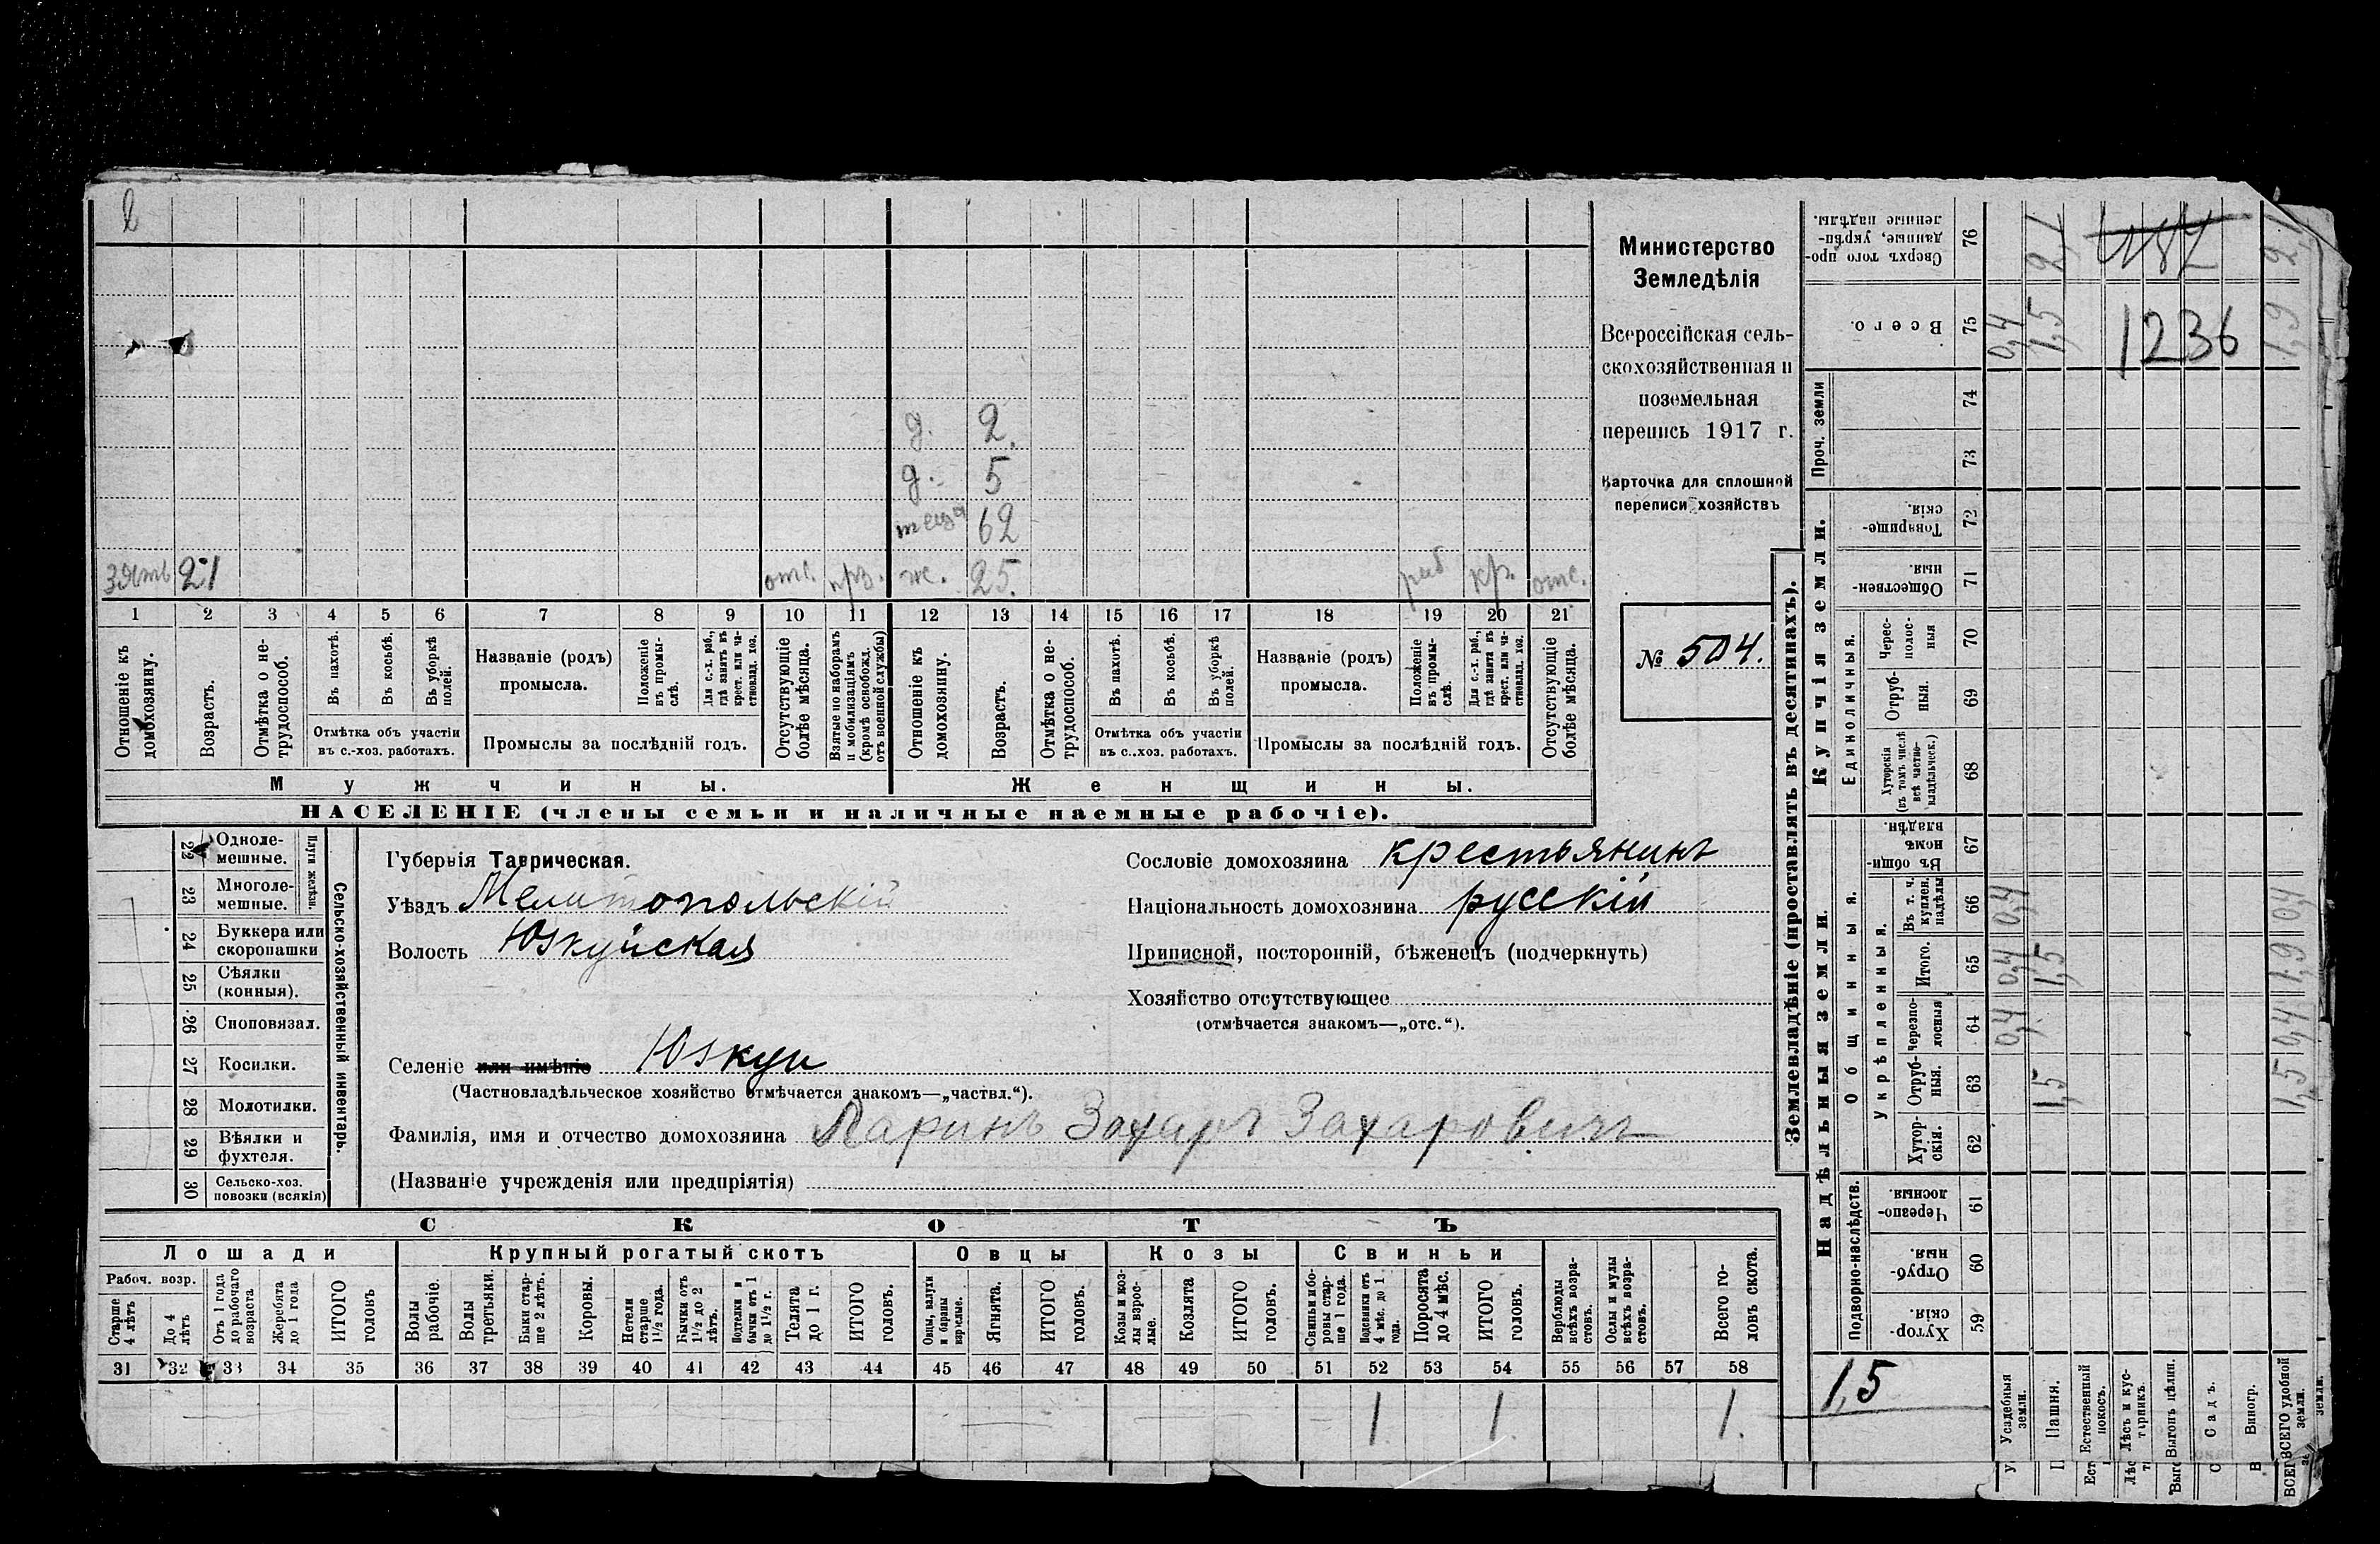 2
д. 2.
д. 5
теща 62
зять 21 отс. прз. ж. 25. раб кр. отс.
1 2 3 4 5 6 7 8 9 10 11 12 13 14 15 16 17 18 19 20 21
Отношеніе къ домохозяину.
Возрастъ.
Отмѣтка о нетрудоспособ.
Въ пахотѣ.
Въ косьбѣ.
Въ уборкѣ полей.
Отмѣтка объ участіи
въ с.-хоз. работахъ.
Названіе (родъ)
промысла.
Положеніе въ промыслѣ.
Для с.-х. раб., гдѣ занятъ въ крест. или частновлад. хоз.
Промыслы за послѣдній годъ.
Отсутствующіе болѣе мѣсяца.
Взятые по наборамъ и мобилизаціямъ (кромѣ освобожд. отъ военной службы)
Отношеніе къ домохозяину.
Возрастъ.
Отмѣтка о нетрудоспособ.
Въ пахотѣ.
Въ косьбѣ.
Въ уборкѣ полей.
Отмѣтка объ участіи
въ с..хоз. работахъ.
Названіе (родъ)
промысла.
Положеніе въ промыслѣ.
Для с.-х. раб., гдѣ занята въ крест. или частновлад. хоз.
Промыслы за послѣдній годъ.
Отсутствующіе болѣе мѣсяца.
Мужчины. Женщины.
НАСЕЛЕНІЕ (члены семьи и наличные наемные рабочіе).
Министерство
Земледѣлія
Всероссійская сель-
скохозяйственная и
поземельная
перепись 1917 г.
Карточка для сплошной
переписи хозяйствъ
№ 504.
Сельско-хозяйственный инвентарь.
Плуги желѣзн.
22 Одноле-
мешные.
23 Многоле-
мешные.
24 Буккера или
скоропашки
25 Сѣялки
(конныя).
26 Сноповязал.
27 Косилки.
28 Молотилки.
29 Вѣялки и
фухтеля.
30 Сельско-хоз.
повозки (всякія)
Губернія Таврическая.
Уѣздъ Мелитопольскій
Волость Юзкуйская
Селеніе или имѣніе Юзкуи
(Частновладѣльческое хозяйство отмѣчается знакомъ—„частвл.“).
Фамилія, имя и отчество домохозяина Ларинъ Захаръ Захаровичъ
(Названіе учрежденія или предпріятія)
Сословіе домохозяина крестьянинъ
Національность домохозяина русскій
Приписной, посторонній, бѣженецъ (подчеркнуть)
Хозяйство отсутствующее
(отмѣчается знакомъ—„отс.“).
СКОТЪ
Лошади Крупный рогатый скотъ Овцы Козы Свиньи
Рабоч. возр.
Старше 4 лѣтъ
До 4 лѣтъ
Отъ 1 года до рабочаго возраста
Жеребята до 1 года
ИТОГО головъ
Волы рабочіе.
Волы третьяки.
Быки старше 2 лѣтъ.
Коровы.
Нетели старше 1½ года.
Бычки отъ 1½ до 2 лѣтъ.
Подтелки и бычки отъ 1 до 1½ г.
Телята до 1 г.
ИТОГО головъ.
Овцы, валухи и бараны взрослые.
Ягнята.
ИТОГО головъ.
Козы и козлы взрослые.
Козлята
ИТОГО головъ.
Свиньи и боровы старше 1 года.
Подсвинки отъ 4 мѣс. до 1 года.
Поросята до 4 мѣс.
ИТОГО головъ.
Верблюды всѣхъ возрастовъ.
Ослы и мулы всѣхъ возрастовъ.
Всего головъ скота.
31 32 33 34 35 36 37 38 39 40 41 42 43 44 45 46 47 48 49 50 51 52 53 54 55 56 57 58
1 1. 1.
Землевладѣніе (проставлять въ десятинахъ).
Купчія земли.
Надѣльныя земли.
Сверхъ того проданные, укрѣпленные надѣлы. 76 2,1 2,1
Всего. 75 0,4 1,5 1236 1,9
Проч. земли 74 73
Товарищескія. 72
Общественныя. 71
Единоличныя.
Чересполосныя 70
Отрубныя. 69
Хуторскія (въ томъ числѣ всѣ частновладѣльческ.) 68
Общинныя.
Въ общинномъ владѣн. 67
Укрѣпленныя.
Въ т. ч. куплен. надѣлы 66 0,4 0,4
Итого. 65 0,4 1,5 1,9
Черезполосныя 64 0,4 0,4
Отрубныя. 63 1,5 1,5
Хуторскія. 62
Подворно-наслѣдств.
Черезполосныя 61
Отрубныя. 60
Хуторскія. 59
1,5
Усадебныя земли.
Пашня.
Естественный покосъ.
Лѣсъ и кустарникъ.
Выгонъ цѣлин.
Садъ.
Виногр.
ВСЕГО удобной земли.